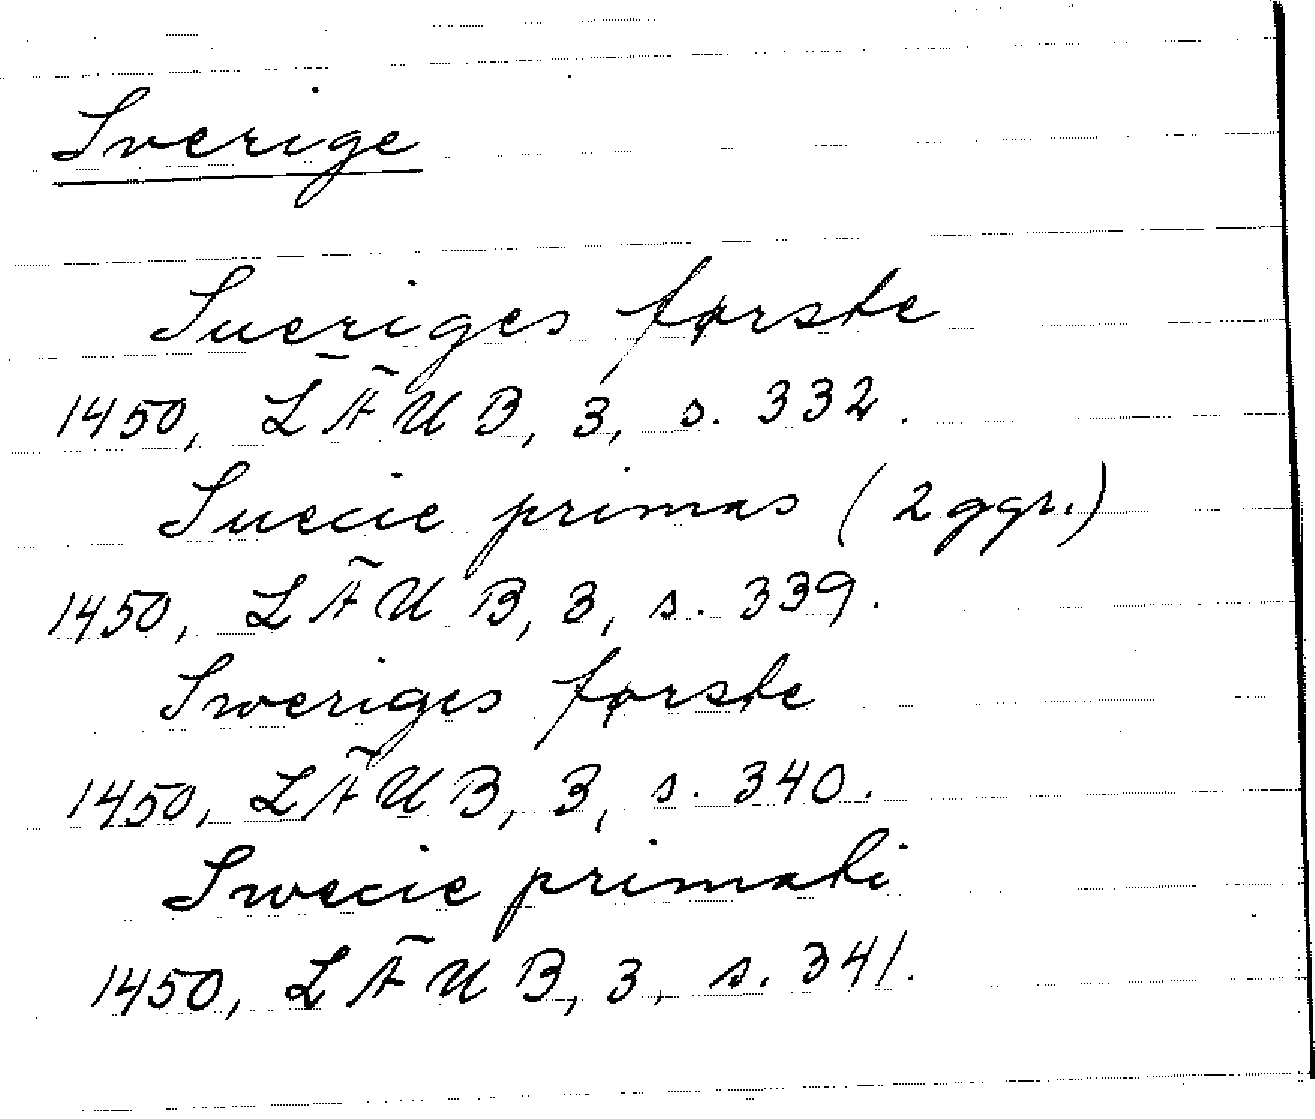 Sverige
Sueriges første
1450, LÄUB, 3, s. 332.
Suecie primas (2 ggr.)
1450, LÄUB, 3, s. 339.
Sweriges første
1450, LÄUB, 3, s. 340.
Swecie primati
1450, LÄUB, 3, s. 341.